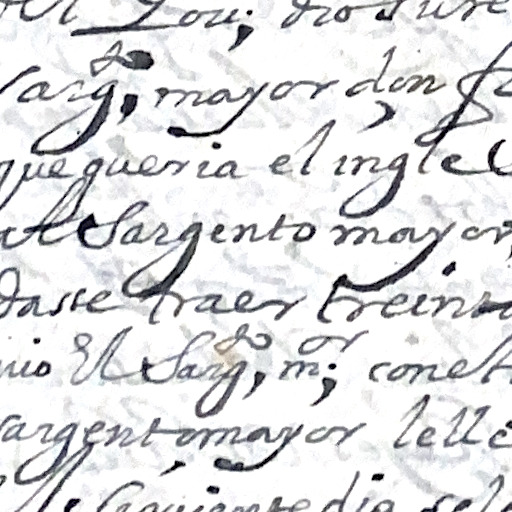 el Gov.; dio
Sarg.to, mayor don
que queria el ingle
al Sargento mayor,
dasse traer treinta
El Sarg.to, m.or; con el
sargento mayor lelle
siguiente dia